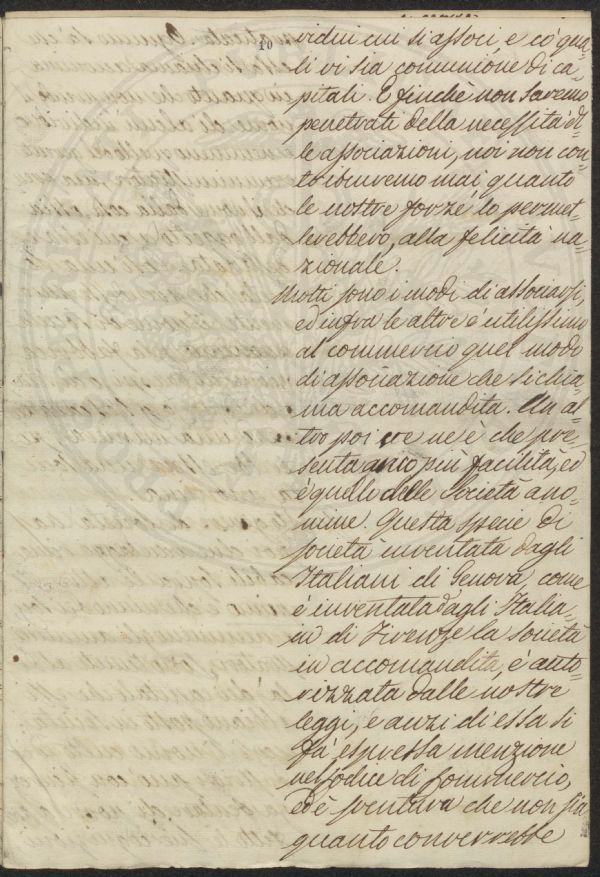 10
vidui cui si associ, e co' qua=
li vi sia comunione di ca=
pitali. E finchè non saremo
penetrati della necessità di=
le associazioni, noi non con=
tribuiremo mai quanto
le nostre forze lo permet=
terebbero, alla felicità na=
zionale.
Molti sono i modi di associarsi,
ed infra le altre è utilissimo
al commercio quel modo
di associazione che si chia
ma accomandita. Un al=
tro poi ve ne è che pre=
senta anco più facilità, ed
è quello delle Società ano=
nime. Questa specie di
società inventata dagli
Italiani di Genova, come
è inventata dagli Italia=
ni di Firenze la società
in accomandita, è auto=
rizzata dalle nostre
leggi, e anzi di essa si
fa espressa menzione
nel Codice di Commercio,
ed è sventura che non sia
quanto converrebbe